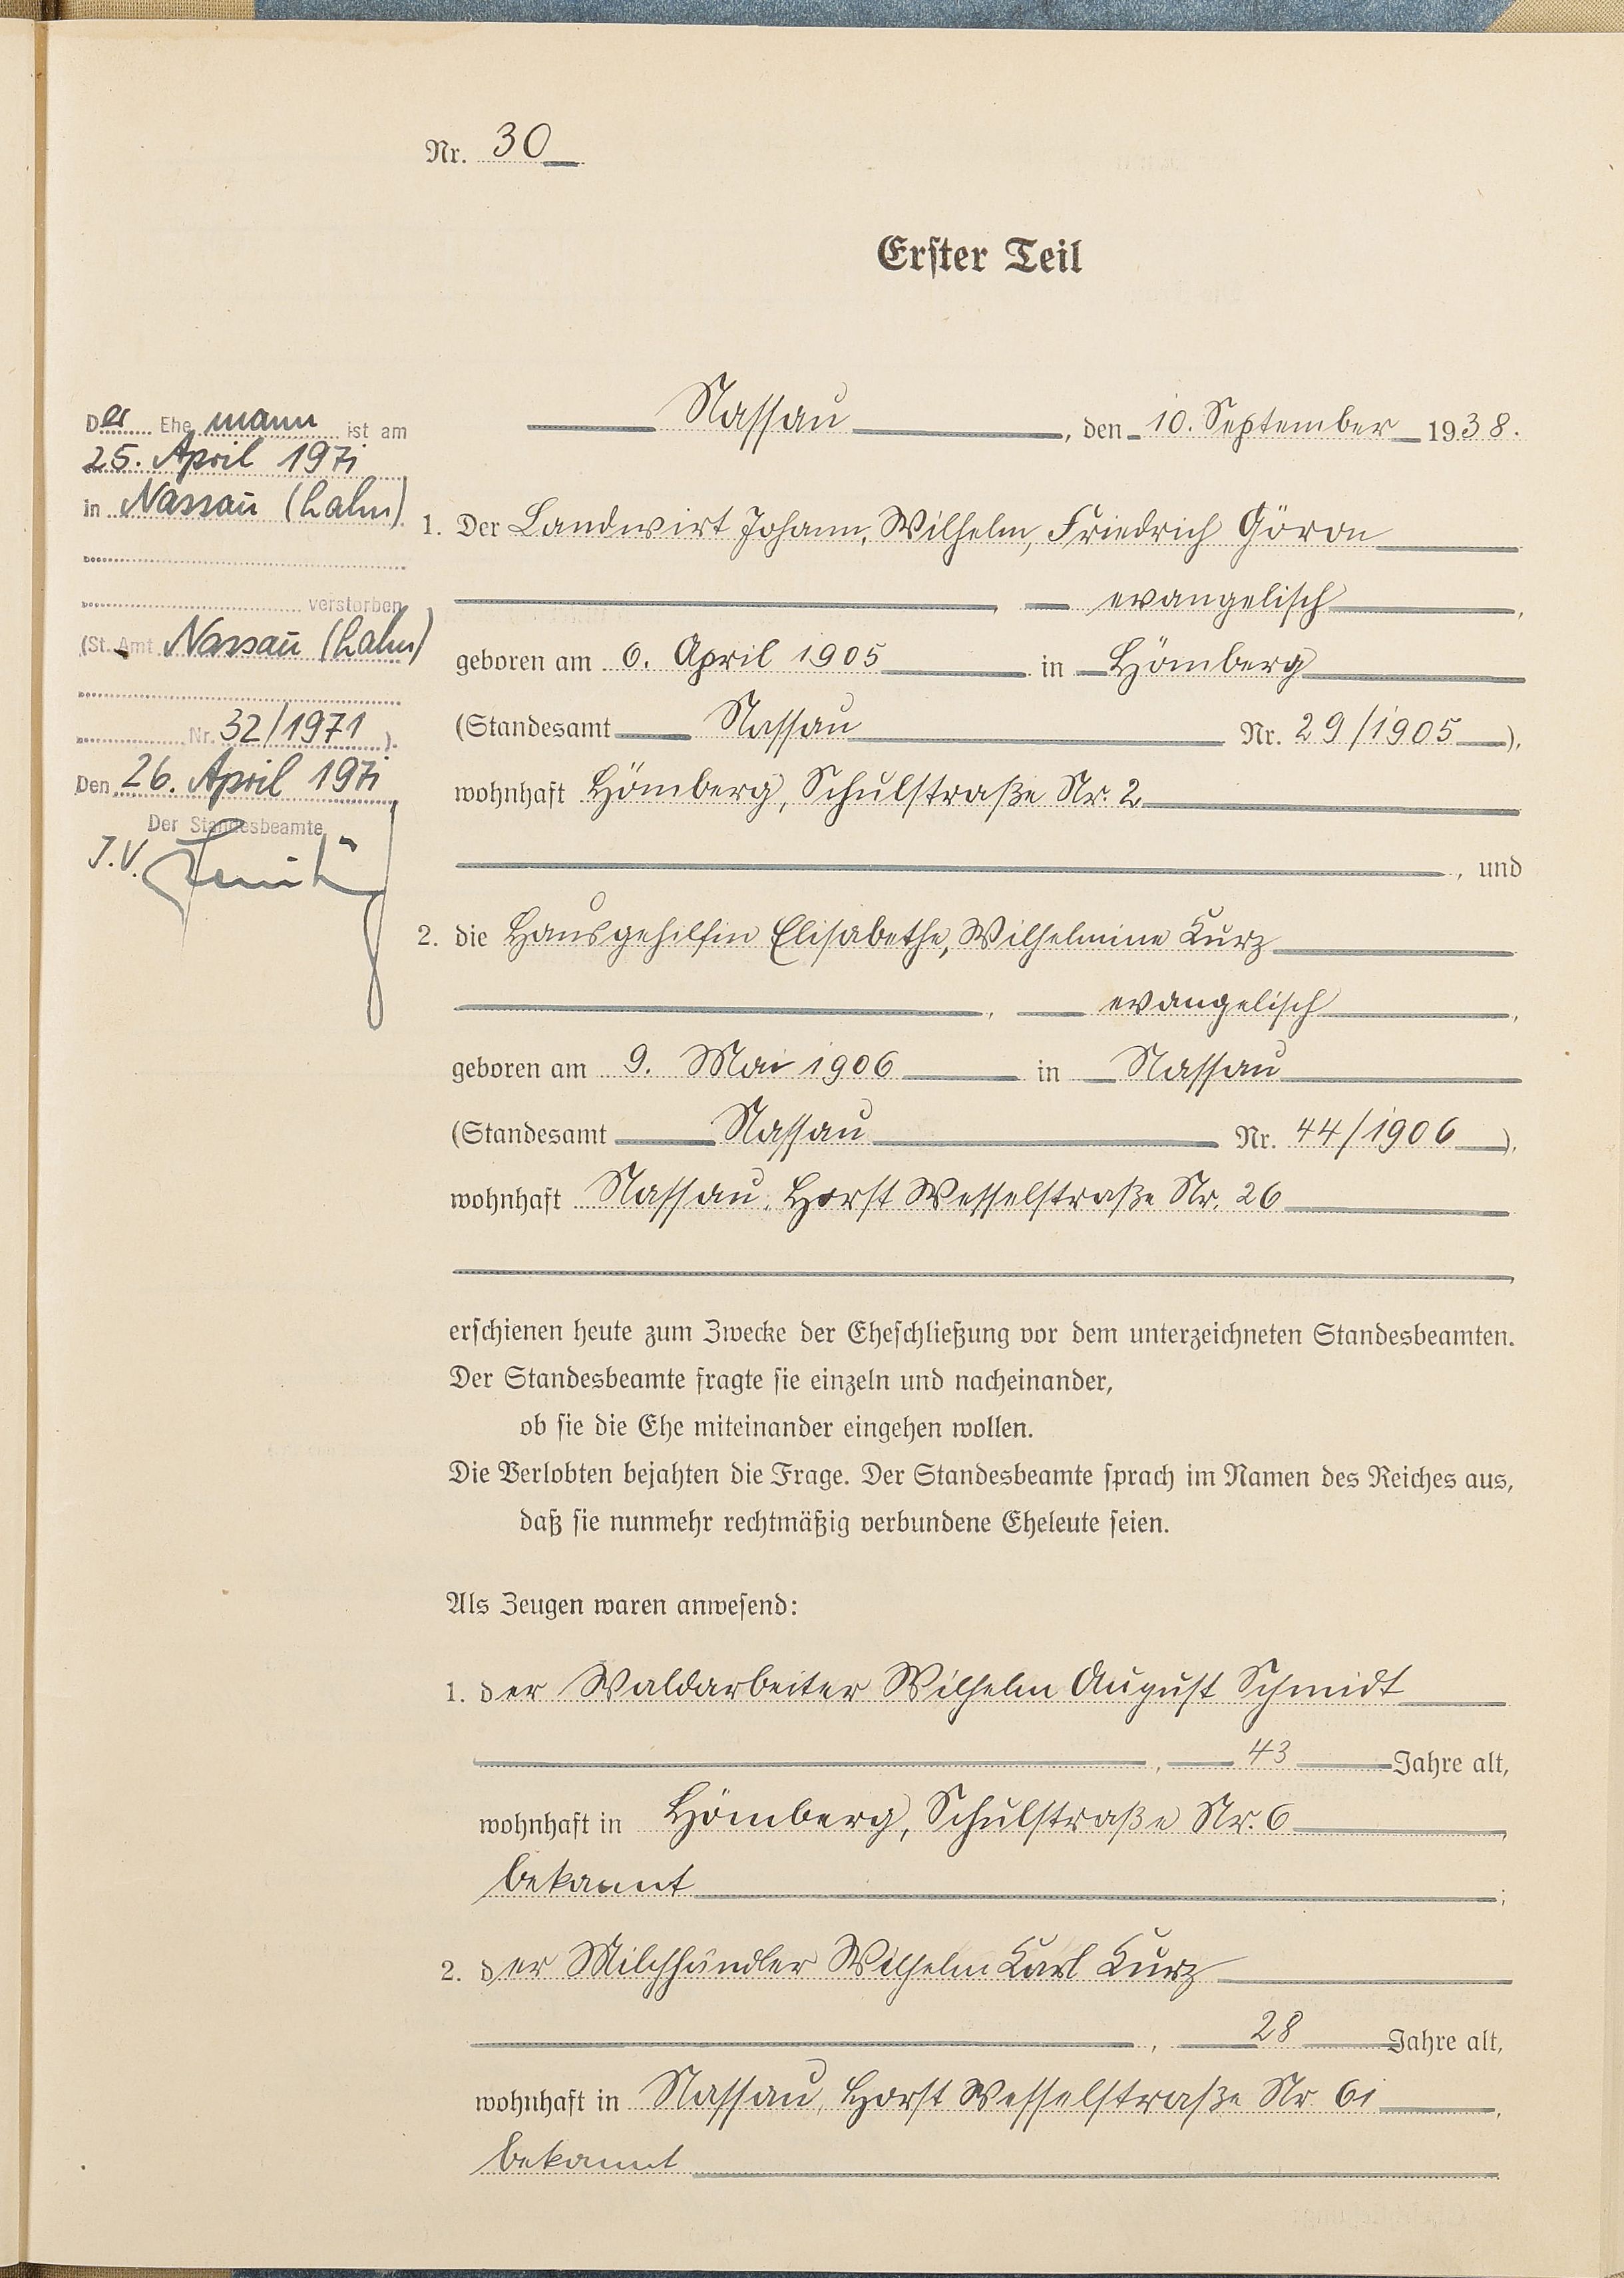 Nr. 30
Erster Teil
Nassau, den 10. September 1938.
Der Ehemann ist am
25. April 1971
in Nassau (Lahn)
verstorben
(St. Amt Nassau (Lahn)
Nr. 32/1971 ).
Den 26. April 1971
Der Standesbeamte
J.V.
1. Der Landwirt Johann, Wilhelm, Friedrich Göron
evangelisch,
geboren am 6. April 1905 in Hömberg
(Standesamt Nassau Nr. 29/1905 ),
wohnhaft Hömberg, Schulstraße Nr. 2
, und
2. die Hausgehilfin Elisabethe, Wilhelmine Kurz
, evangelisch,
geboren am 9. Mai 1906 in Nassau
(Standesamt Nassau Nr. 44/1906 ),
wohnhaft Nassau, Horst Wesselstraße Nr. 26
erschienen heute zum Zwecke der Eheschließung vor dem unterzeichneten Standesbeamten.
Der Standesbeamte fragte sie einzeln und nacheinander,
ob sie die Ehe miteinander eingehen wollen.
Die Verlobten bejahten die Frage. Der Standesbeamte sprach im Namen des Reiches aus,
daß sie nunmehr rechtmäßig verbundene Eheleute seien.
Als Zeugen waren anwesend:
1. der Waldarbeiter Wilhelm August Schmidt
, 43 Jahre alt,
wohnhaft in Hömberg, Schulstraße Nr. 6
bekannt ;
2. der Milchhändler Wilhelm Karl Kurz
, 28 Jahre alt,
wohnhaft in Nassau, Horst Wesselstraße Nr 61,
bekannt